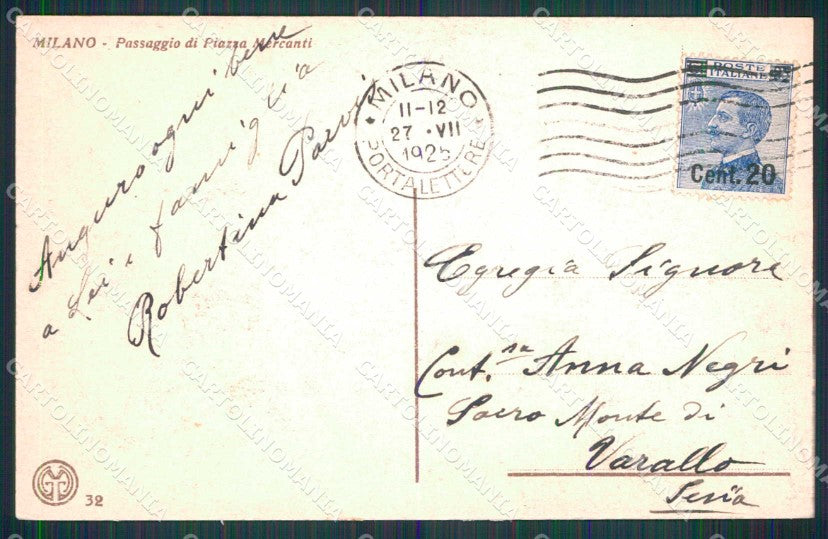 MILANO - Passaggio di Piazza Mercanti
Auguro ogni bene
a Lei e famiglia
Robertina
MILANO
11-12
27 · VII
1925
PORTA LETTERE
POSTE
ITALIANE
Cent. 20
Egregia Signora
Cont.ssa Anna Negri
Sacro Monte di
Varallo
Sesia
32
CARTOLINOMANIA